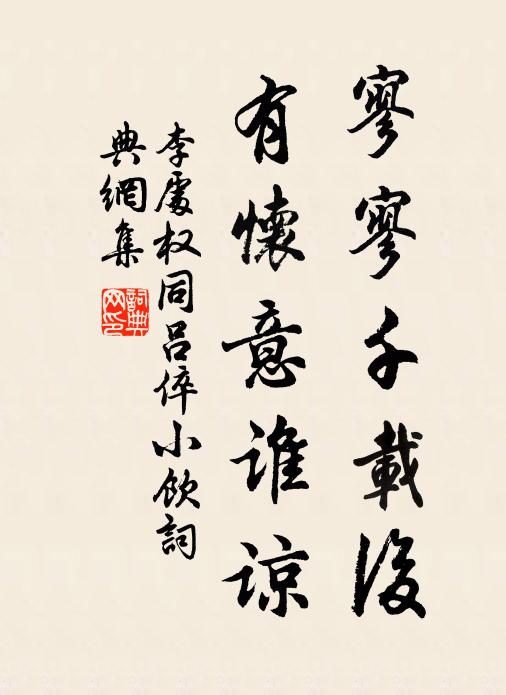 寥寥千載後
有懷意誰諒
李處权同吕倅小飲詞
典網集
詞典網印